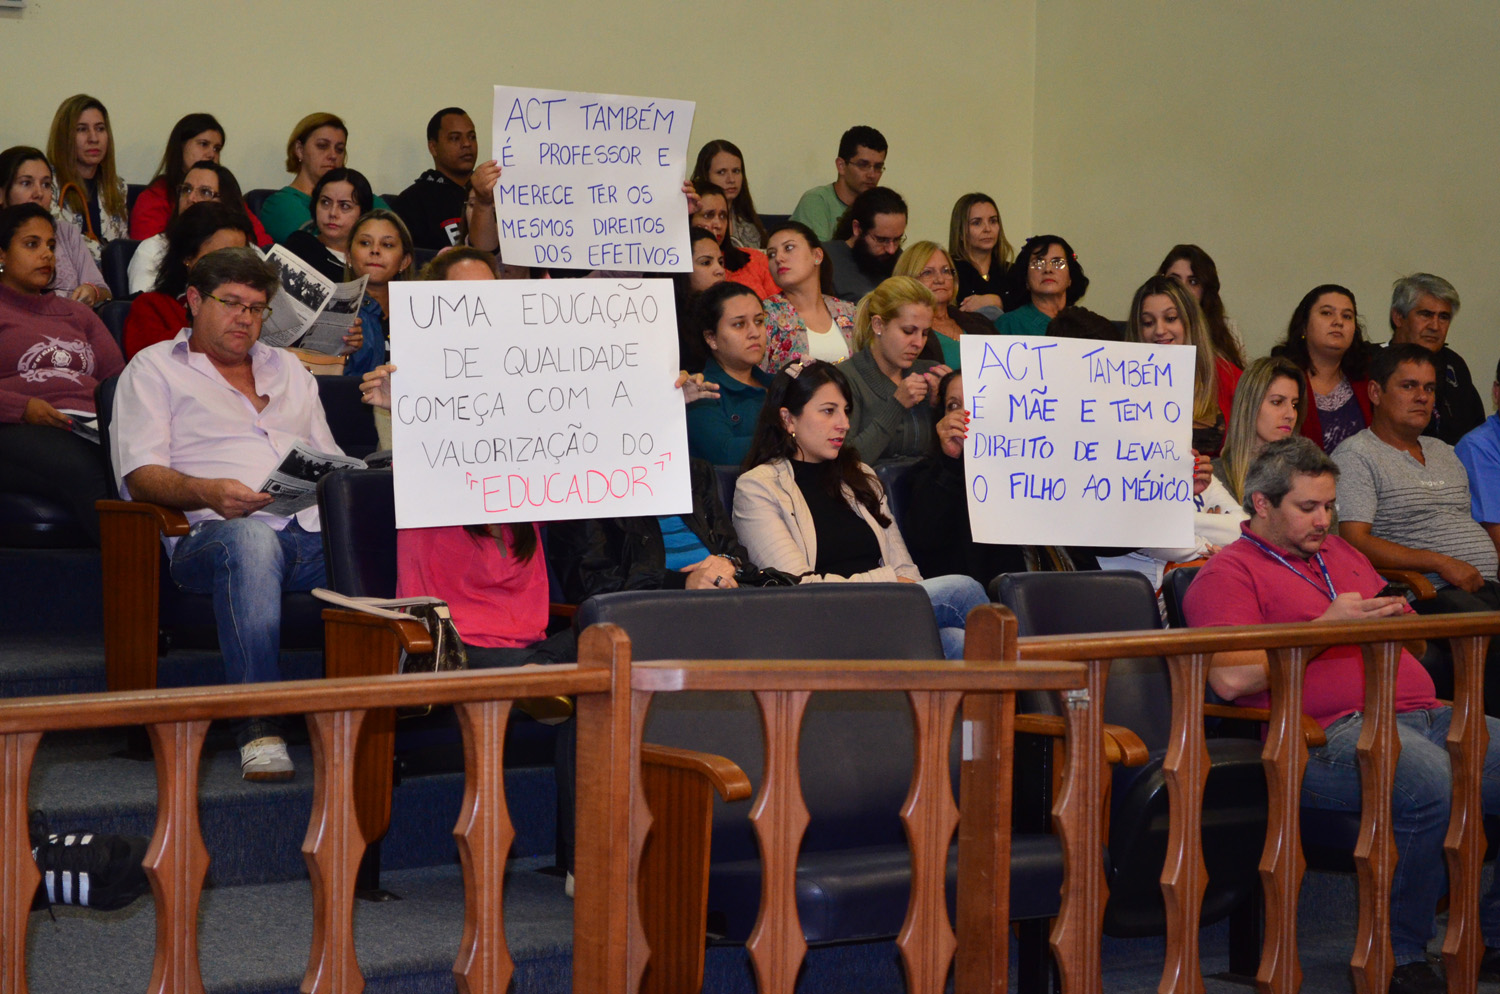 ACT TAMBÉM
É PROFESSOR E
MERECE TER OS
MESMOS DIREITOS
DOS EFETIVOS
UMA EDUCAÇÃO
DE QUALIDADE
COMEÇA COM A
VALORIZAÇÃO DO
"EDUCADOR"
ACT TAMBÉM
É MÃE E TEM O
DIREITO DE LEVAR
O FILHO AO MÉDICO.